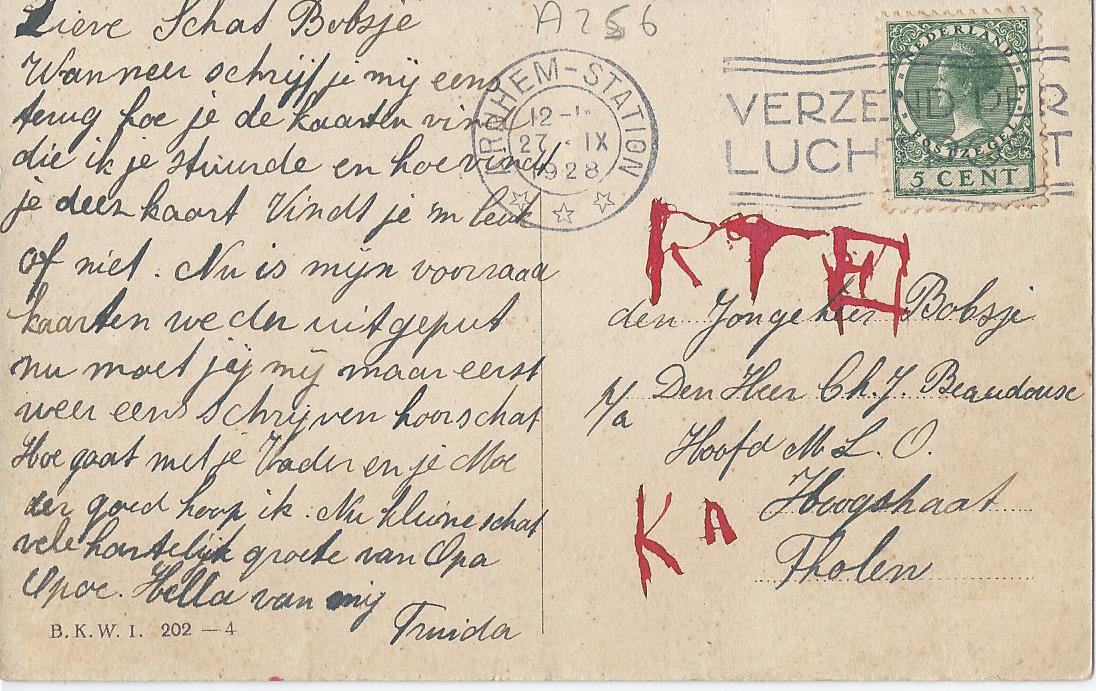 Lieve Schat Bobsje
Wanneer schrijf je mij eens
terug hoe je de kaarten vind
die ik je stuurde en hoe vindt
je deez kaart Vindt je 'm leuk
of niet. Nu is mijn voorraad
kaarten weder uitgeput
nu moet jij mij maar eerst
weer eens schrijven hoor schat
Hoe gaat met je Vader en je Moe
der goed hoop ik. Nu kleine schat
vele hartelijk groete van Opa
Opoe. Hella van mij
Truida
B.K.W.I. 202 — 4
A 256
ARNHEM-STATION
12-
27 · IX
1928
VERZENDT PER
LUCHTPOST
NEDERLAND
POSTZEGEL
5 CENT
RTE
den Jongeheer Bobsje
p/a Den Heer Ch. J. Beaudouse
Hoofd M L. O.
Hoogstraat
Tholen
KA